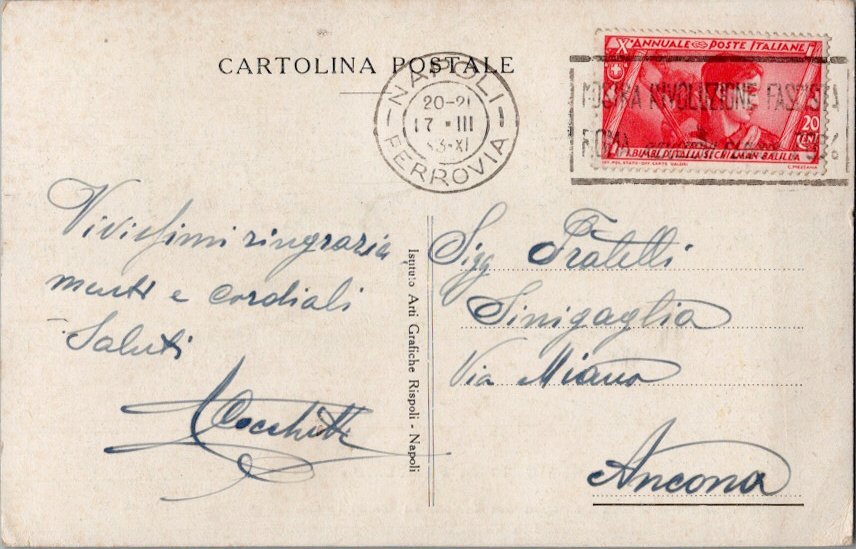 CARTOLINA POSTALE
NAPOLI
20-21
17 · III
33·XI
FERROVIA
X° ANNUALE POSTE ITALIANE
20
CENT
I BIMBI D'ITALIA SI CHIAMAN BALILLA
IST. POL. STATO-OFF. CARTE VALORI
C. MEZZANA
MOSTRA RIVOLUZIONE FASCISTA
ROMA
Vivissimi ringrazia
menti e cordiali
Saluti
Istituto Arti Grafiche Rispoli - Napoli
Sigg Fratelli
Sinigaglia
Via Miano
Ancona